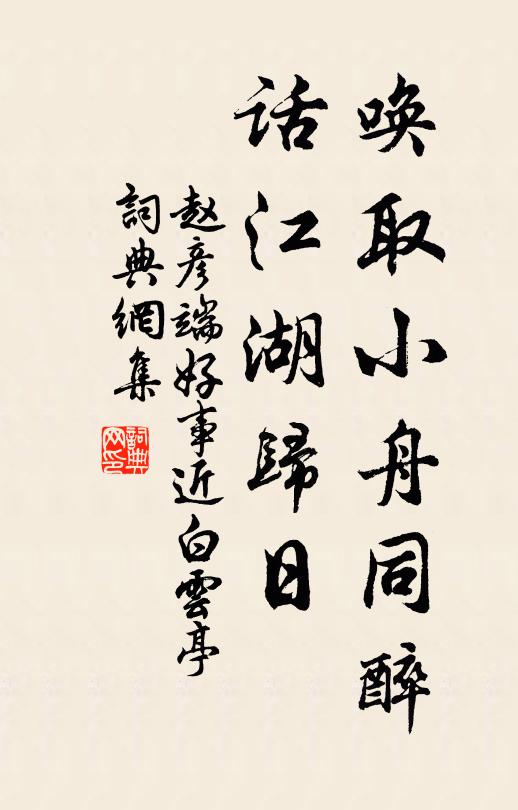 唤取小舟同醉
话江湖歸日
赵彦端好事近白雲亭
詞典網集
詞典网印